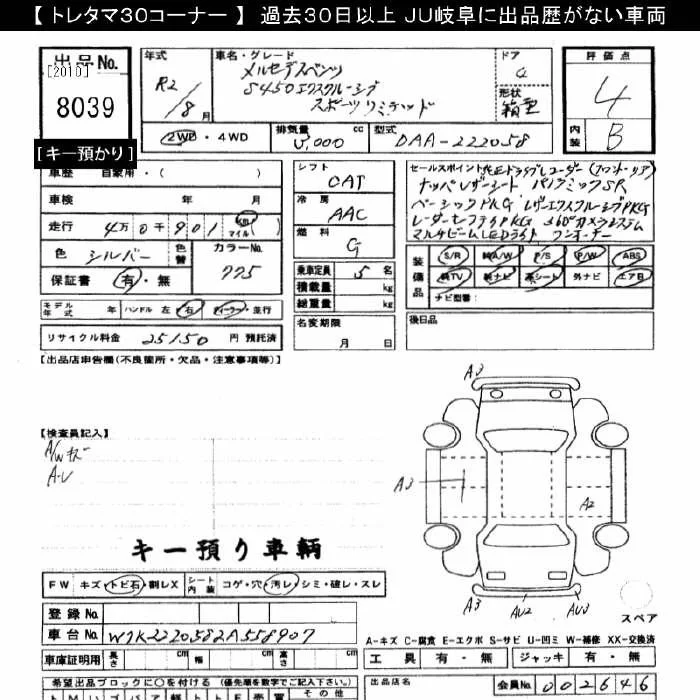 【 トレタマ30コーナー 】 過去30日以上 JU岐阜に出品歴がない車両
出品 No.
[2010]
8039
[キー預かり]
年式 R2/8月
車名・グレード
メルセデスベンツ
S450エクスクルーシブ
スポーツリミテッド
ドア 4
形状 箱型
評価点 4
内装 B
2WD ・ 4WD
排気量 3,000 cc
型式 DAA-222058
車歴 自家用・( )
車検 年 月
走行 4万0千901 Km マイル
色 シルバー 色替
カラーNo. 775
保証書 有・無
モデル年式 年 ハンドル 左・右 ディーラー・並行
リサイクル料金 25150 円 預託済
シフト OAT
冷房 AAC
燃料 G
乗車定員 5 名
積載量 kg
総重量 kg
名変期限 月 日
セールスポイント 純正ドライブレコーダー(フロント・リア)
ナッパレザーシート パノラミックSR
ベーシックPKG レザーエクスクルーシブPKG
レーダーセーフティPKG 360°カメラシステム
マルチビームLEDライト ワンオーナー
装備品
S/R 純A/W P/S P/W ABS
純TV 純ナビ 革シート 外ナビ エアB
ナビ型番:
後日品
【出品店申告欄(不良箇所・欠品・注意事項等)】
【検査員記入】
A/Wキズ
A-U
キー預り車輌
A3
A3
A2
A3
AU2
AU3
スペア
FW キズ・トビ石・割レX シート内装 コゲ・穴・汚レ・シミ・破レ・スレ
登録 No.
車台 No. W1K2220582A558907
車庫証明用 長さ 幅 高さ
A-キズ C-腐食 E-エクボ S-サビ U-凹ミ W-補修 XX-交換済
工具 有・無 ジャッキ 有・無
希望出品ブロックに〇を付ける (優先順を数字でご記入下さい。)
その他
出品店名
会員No. 002646